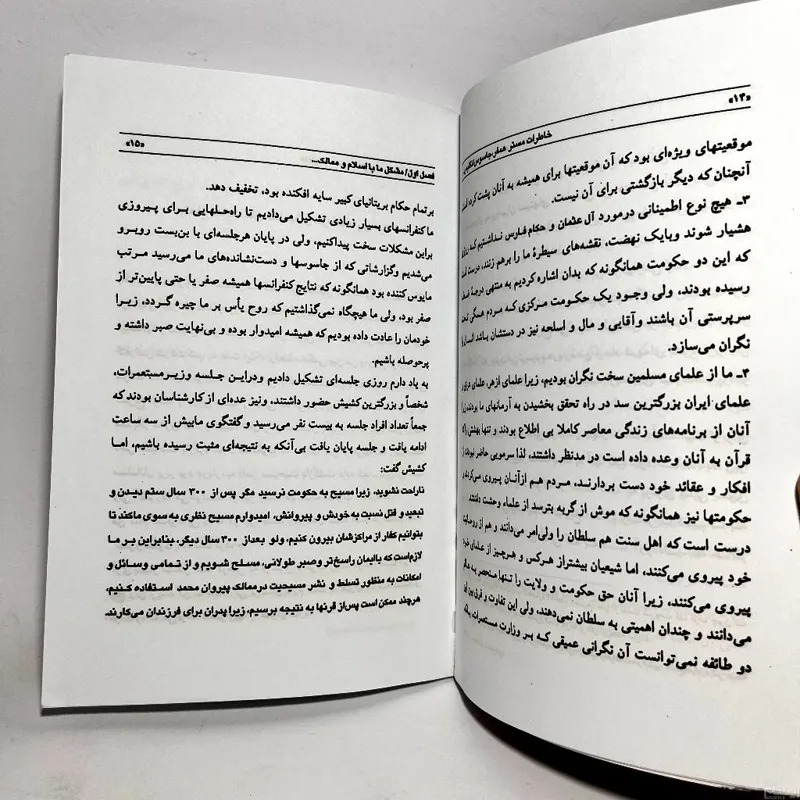 «۱۴»
خاطرات مستر همفر، جاسوس انگلیس
موقعیتهای ویژه‌ای بود که آن موقعیتها برای همیشه به آنان پشت کرده
آنچنان که دیگر بازگشتی برای آن نیست.
۳ـ هیچ نوع اطمینانی درمورد آل عثمان و حکام فارس نداشتیم که
هشیار شوند وبایک نهضت، نقشه‌های سیطرهٔ ما را برهم زنند، درست است
که این دو حکومت همانگونه که بدان اشاره کردیم به منتهی درجهٔ ضعف
رسیده بودند، ولی وجود یک حکومت مرکزی کـه مـردم همگی تحت
سرپرستی آن باشند وآقایی و مال و اسلحه نیز در دستشان باشد انسان را
نگران می‌سازد.
۴ـ ما از علمای مسلمین سخت نگران بودیم، زیرا علمای ازهر، علمای عراق و
علمای ایران بزرگترین سد در راه تحقق بخشیدن به آرمانهای ما بودند زیرا
آنان از برنامه‌های زندگی معاصر کاملا بی اطلاع بودند و تنها بهشتی را که
قرآن به آنان وعده داده است در مدنظر داشتند، لذا سرمویی حاضر نبودند از
افکار و عقائد خود دست بردارند، مردم هم ازآنـان پیروی می‌کردند و
حکومتها نیز همانگونه که موش از گربه بترسد از علماء وحشت داشتند
درست است که اهل سنت هم سلطان را ولی‌امر می‌دانند و هم از روحانیت
خود پیروی می‌کنند، اما شیعیان بیشتراز هرکس و هرچیز از علمای خود
پیروی می‌کنند، زیرا آنان حق حکومت و ولایت را تـنها منحصر به عالم
می‌دانند و چندان اهمیتی به سلطان نمی‌دهند، ولی این تفاوت و فرق بین این
دو طائفه نمی‌توانست آن نگرانی عمیقی کـه بـر وزارت مستعمرات بلکه
فصل اول/ مشکل ما با اسلام و ممالک...
«۱۵»
برتمام حکام بریتانیای کبیر سایه افکنده بود، تخفیف دهد.
ما کنفرانسهای بسیار زیادی تشکیل می‌دادیم تا راه‌حلهایی برای پیروزی
براین مشکلات سخت پیداکنیم، ولی در پایان هرجلسه‌ای با بن‌بست روبرو
می‌شدیم وگزارشاتی که از جاسوسها و دست‌نشانده‌های ما می‌رسید مرتب
مایوس کننده بود همانگونه که نتایج کنفرانسها همیشه صفر یا حتی پایین‌تر از
صفر بود، ولی ما هیچگاه نمی‌گذاشتیم که روح یأس بر ما چیره گردد، زیـرا
خودمان را عادت داده بودیم که همیشه امیدوار بوده و بی‌نهایت صبر داشته و
پرحوصله باشیم.
به یاد دارم روزی جلسه‌ای تشکیل دادیم ودراین جلسه وزیـرمستعمرات،
شخصاً و بزرگترین کشیش حضور داشتند، ونیز عده‌ای از کارشناسان بودند که
جمعاً تعداد افراد جلسه به بیست نفر می‌رسید و گفتگوی مابیش از سه ساعت
ادامه یافت و جلسه پایان یافت بی‌آنکه به نتیجه‌ای مثبت رسیده باشیم، امـا
کشیش گفت:
ناراحت نشوید، زیرا مسیح به حکومت نرسید مگر پس از ۳۰۰ سال ستم دیدن و
تبعید و قتل نسبت به خودش و پیروانش، امیدوارم مسیح نظری به سوی ماکند تا
بتوانیم کفار از مراکزشان بیرون کنیم، ولو بعداز ۳۰۰ سال دیگر، بنابراین بر ما
لازم‌است که باایمان راسخ‌تر وصبر طولانی، مسـلح شویم و از تـمامی وسـائل و
امکانات به منظور تسلط و نشر مسیحیت درممالک پیروان محمد استفاده کـنیم،
هرچند ممکن است پس‌از قرنها به نتیجه برسیم، زیرا پدران برای فرزندان می‌کارند.